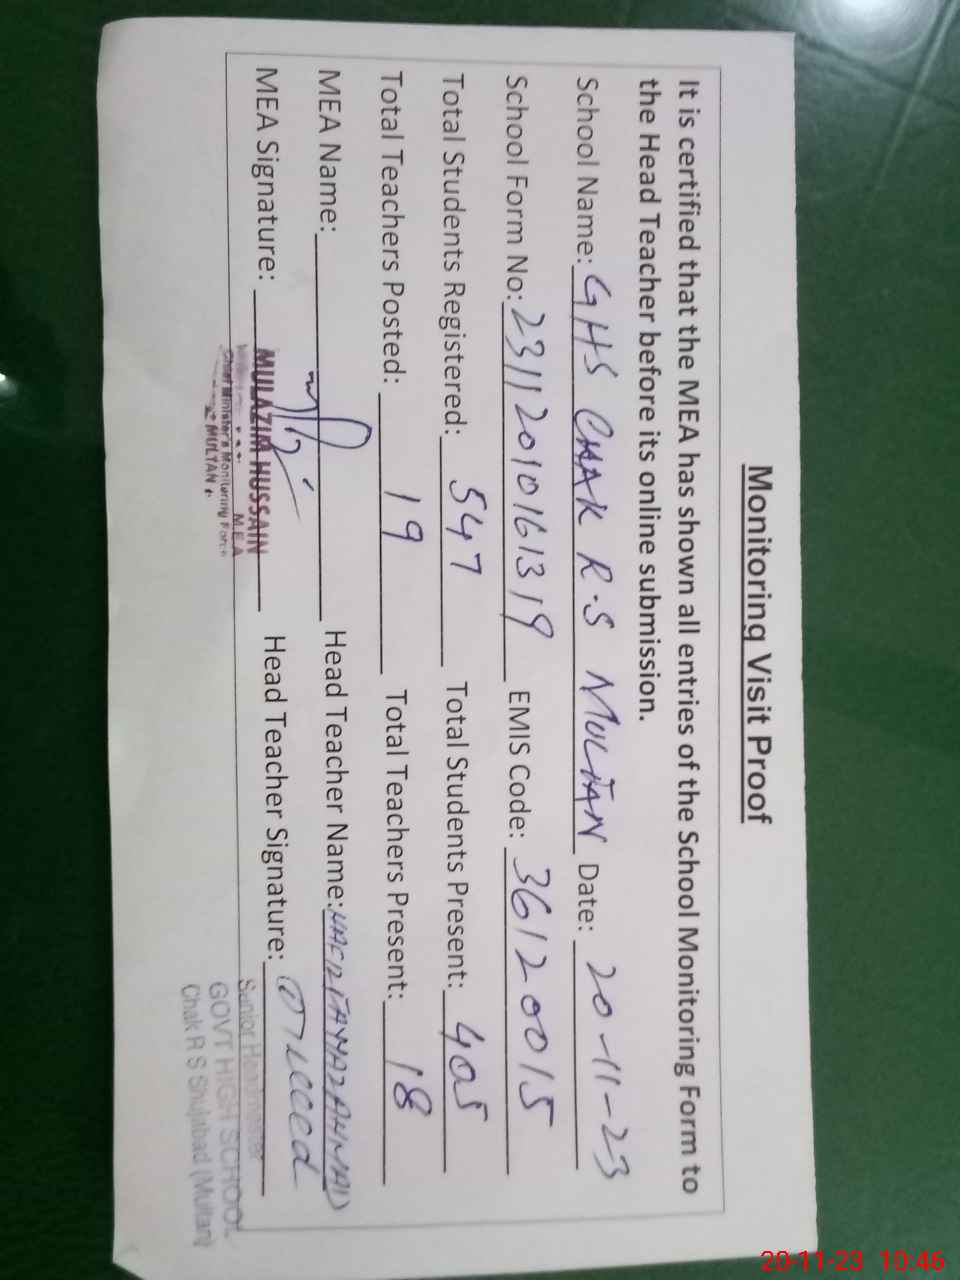 Monitoring Visit Proof
It is certified that the MEA has shown all entries of the School Monitoring Form to
the Head Teacher before its online submission.
School Name: GHS CHAK R.S MULTAN Date: 20-11-23
School Form No: 23112010161319 EMIS Code: 36120015
Total Students Registered: 547 Total Students Present: 405
Total Teachers Posted: 19 Total Teachers Present: 18
MEA Name: Head Teacher Name: AHMAD
MEA Signature: Head Teacher Signature:
MULAZIM HUSSAIN
M.E.A
Chief Minister's Monitoring Force
MULTAN
Senior Headmaster
GOVT HIGH SCHOOL
Chak R S Shujabad (Multan)
20-11-23 10:46